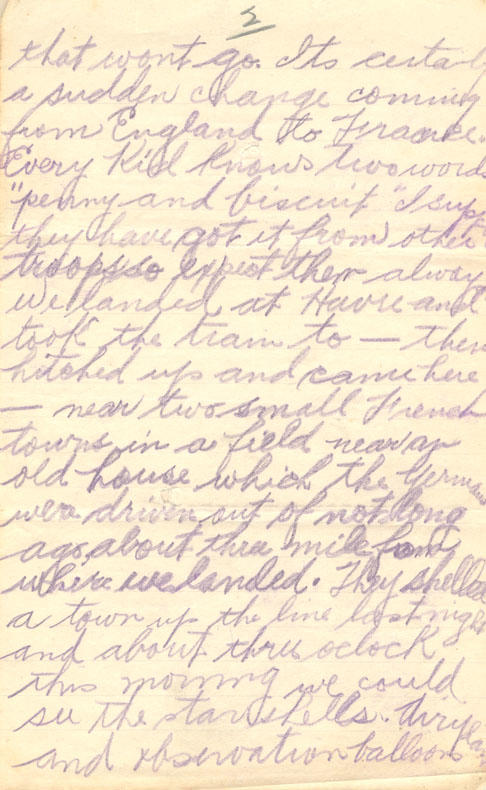 2
that wont go. Its certai
a sudden change coming
from England to France.
Every Kid knows two words
"penny and biscuit" I sup
they have got it from other
troops so expect them alway
we landed at Havre and
took the train to — then
hitched up and came here
— near two small French
towns in a field near an
old house which the German
were driven out of not long
ago, about three mile from
where we landed. They shelled
a town up the line last night
and about three oclock
this morning we could
see the star shells.
and observation balloons